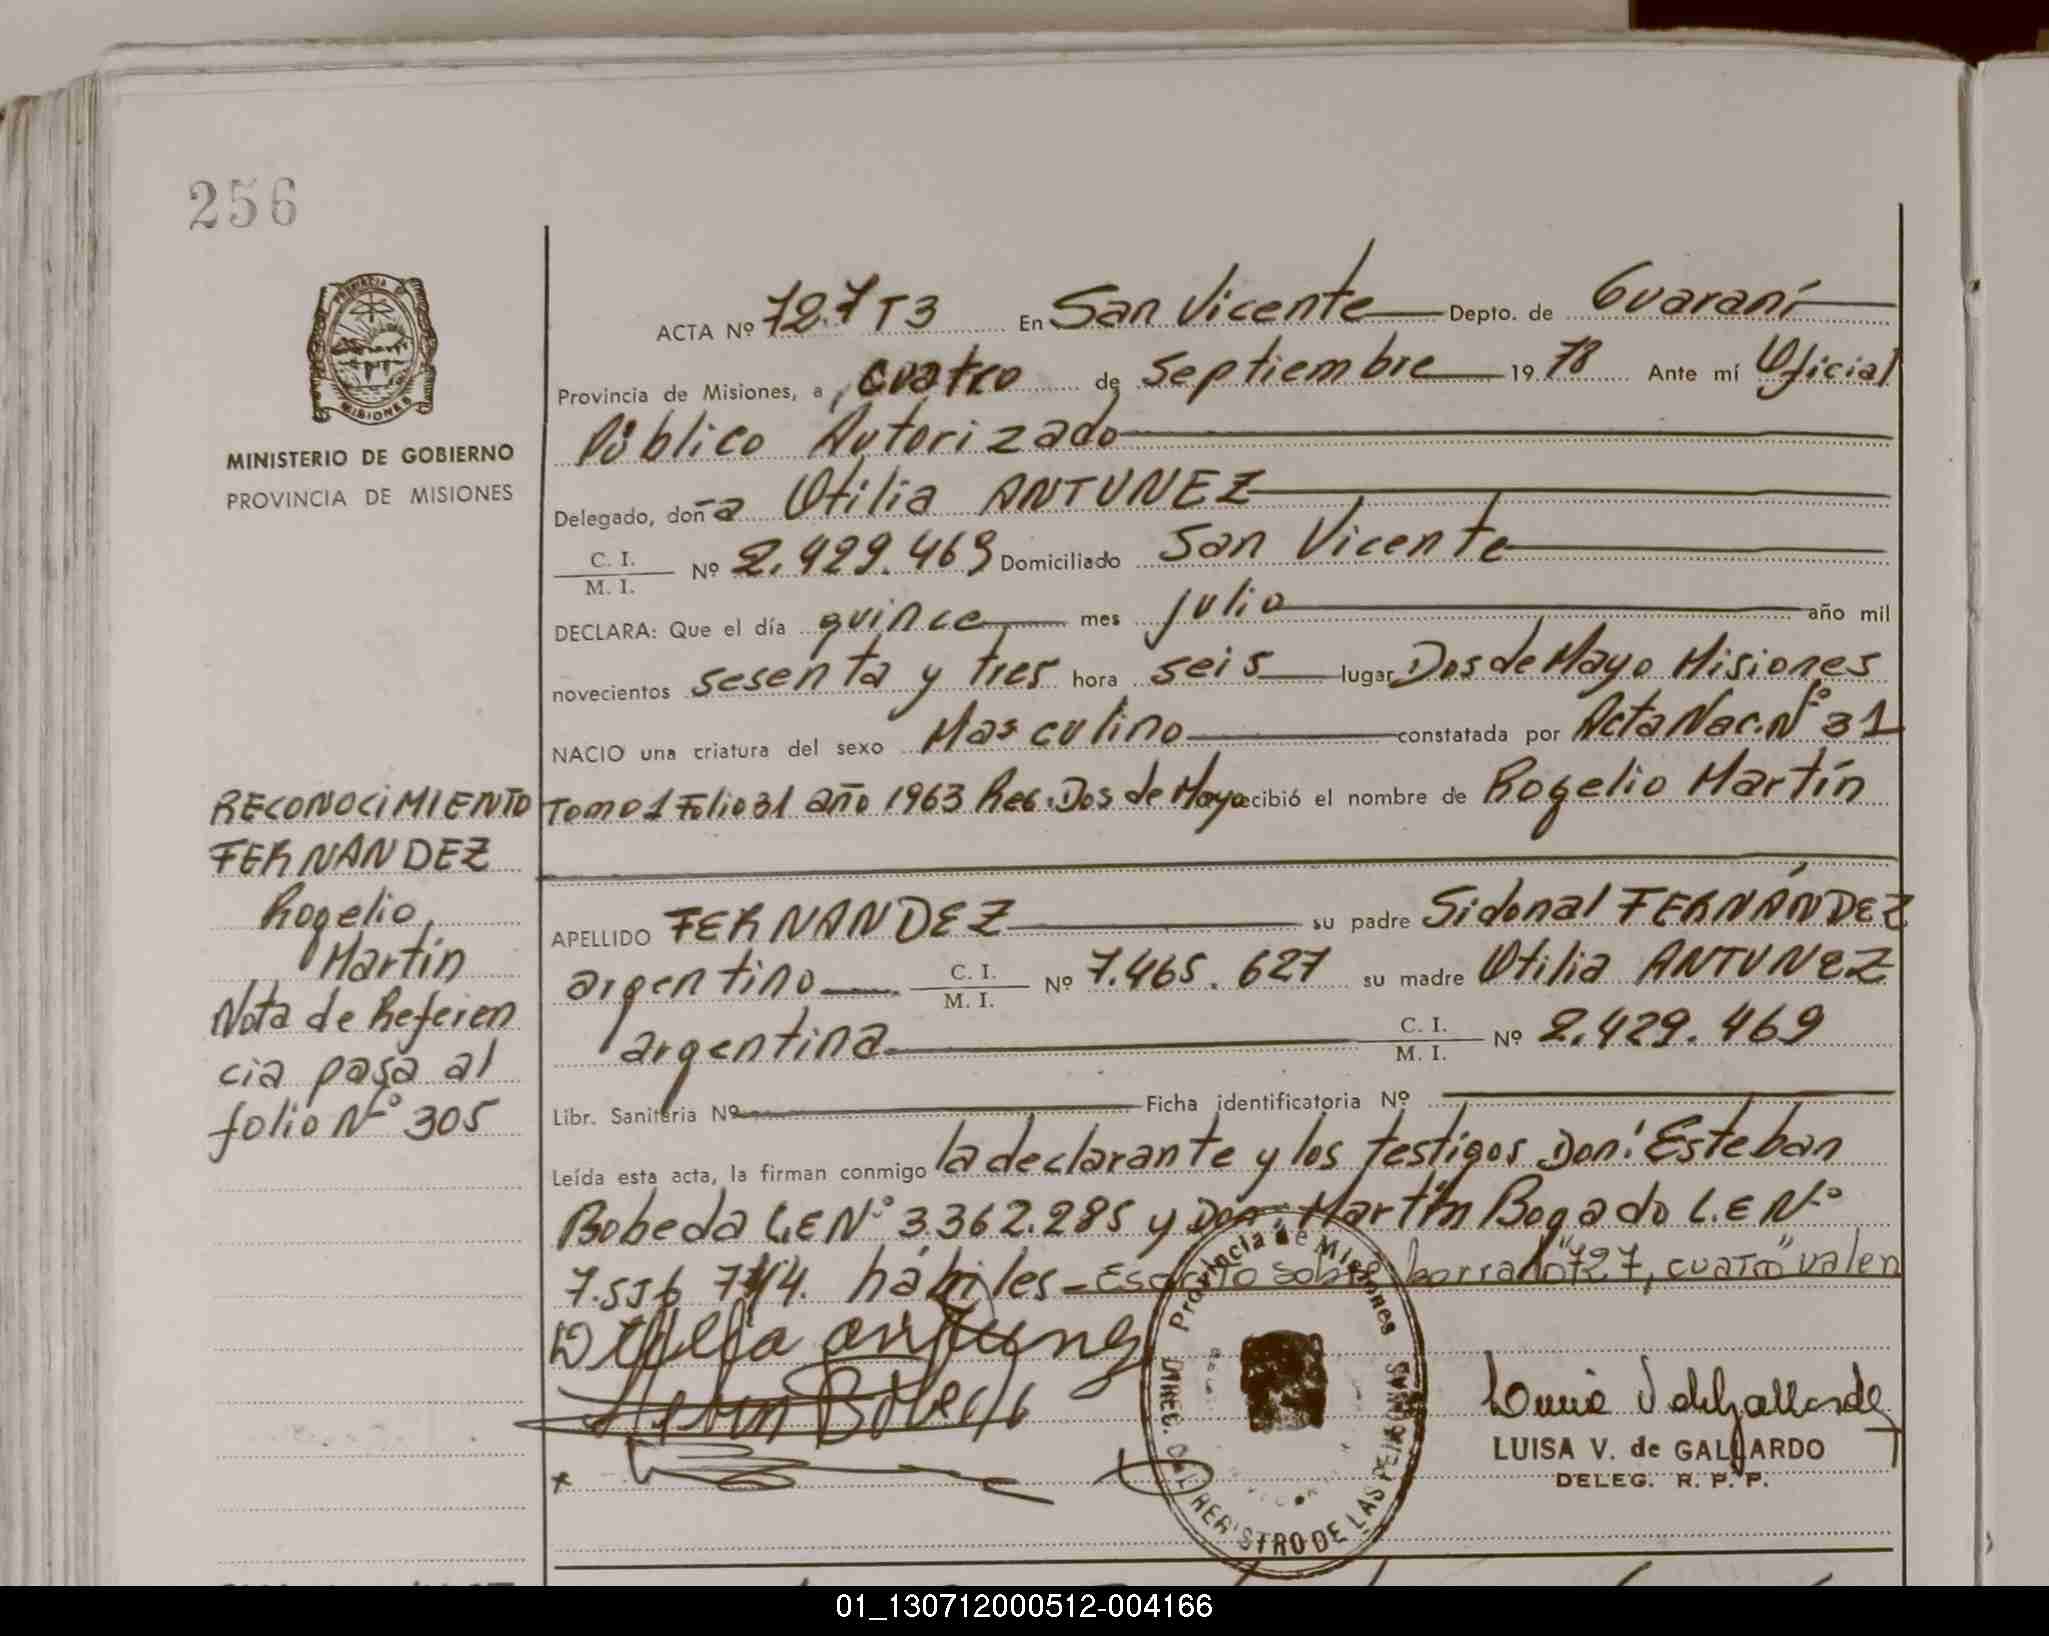 256
PROVINCIA DE
MISIONES
MINISTERIO DE GOBIERNO
PROVINCIA DE MISIONES
ACTA Nº 727 T3 En San Vicente Depto. de Guaraní
Provincia de Misiones, a cuatro de Septiembre 1978 Ante mí Oficial
Público Autorizado
Delegado, doña Otilia ANTUNEZ
C. I.
M. I. Nº 2.429.469 Domiciliado San Vicente
DECLARA: Que el día quince mes julio año mil
novecientos sesenta y tres hora seis lugar Dos de Mayo Misiones
NACIO una criatura del sexo Masculino constatada por Acta Nac. Nº 31
Tomo 1 Folio 31 año 1963 Reg. Dos de Mayo recibió el nombre de Rogelio Martín
APELLIDO FERNANDEZ su padre Sidonal FERNÁNDEZ
argentino C. I.
M. I. Nº 7.465.627 su madre Otilia ANTUNEZ
argentina C. I.
M. I. Nº 2.429.469
Libr. Sanitaria Nº Ficha identificatoria Nº
Leída esta acta, la firman conmigo la declarante y los testigos Don: Esteban
Bobeda L.E Nº 3.362.285 y Don: Martín Bogado L.E Nº
hábiles - Escrito sobre borrado "727, cuatro" valen
RECONOCIMIENTO
FERNANDEZ
Rogelio
Martín
Nota de Referen
cia pasa al
folio Nº 305
Provincia de Misiones
DIREC. DEL REGISTRO DE LAS PERSONAS
LUISA V. de GALLARDO
DELEG. R. P. P.
01_130712000512-004166